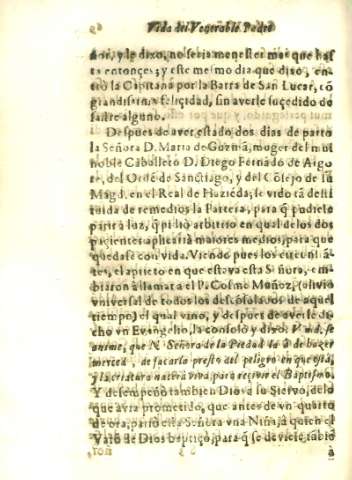 Vida del Venerable Padre
dor, y le dixo, no seria menester mas que has
ta entonçes; y este mesmo dia que dixo, en-
trò la Capitana por la Barra de San Lucar, cõ
grandissima felicidad, sin averle suçedido de
sastre alguno.
Despues de aver estado dos dias de parto
la Señora D. Maria de Guzmã, moger del muy
noble Caballero D. Diego Fernãdo de Argo
te, del Ordẽ de Sanctiago, y del Cõsejo de su
Magd, en el Real de Haziẽda; se vido tã desti
tuida de remedios la Partera, para q̃ pudiese
parir a luz, q̃ pidiò arbitrio en qual de los dos
pacientes aplicaria maiores medios, para que
quedase con vida. Viendo pues los circunstã-
tes, el aprieto en que estava esta Señora, em-
biaron à llamar a el P. Cosme Muñoz, (alivio
vniversal de todos los descõsolados de aquel
tiempo) el qual vino, y despues de averle di-
cho vn Evangelio, la consolò y dixo: V.md. se
anime, que N. Señora de la Piedad la à de hazer
merced, de sacarla presto del peligro en que està,
y la criatura naserà viva para recivir el Baptismo.
Y desempeñò tambien Dios a su Siervo, de lo
que avia prometido, que antes de vn quarto
de ora, pariò esta Señora vna Niña, à quien el
Varõ de Dios baptiçò, para q̃ se deviese tãbiẽ
à